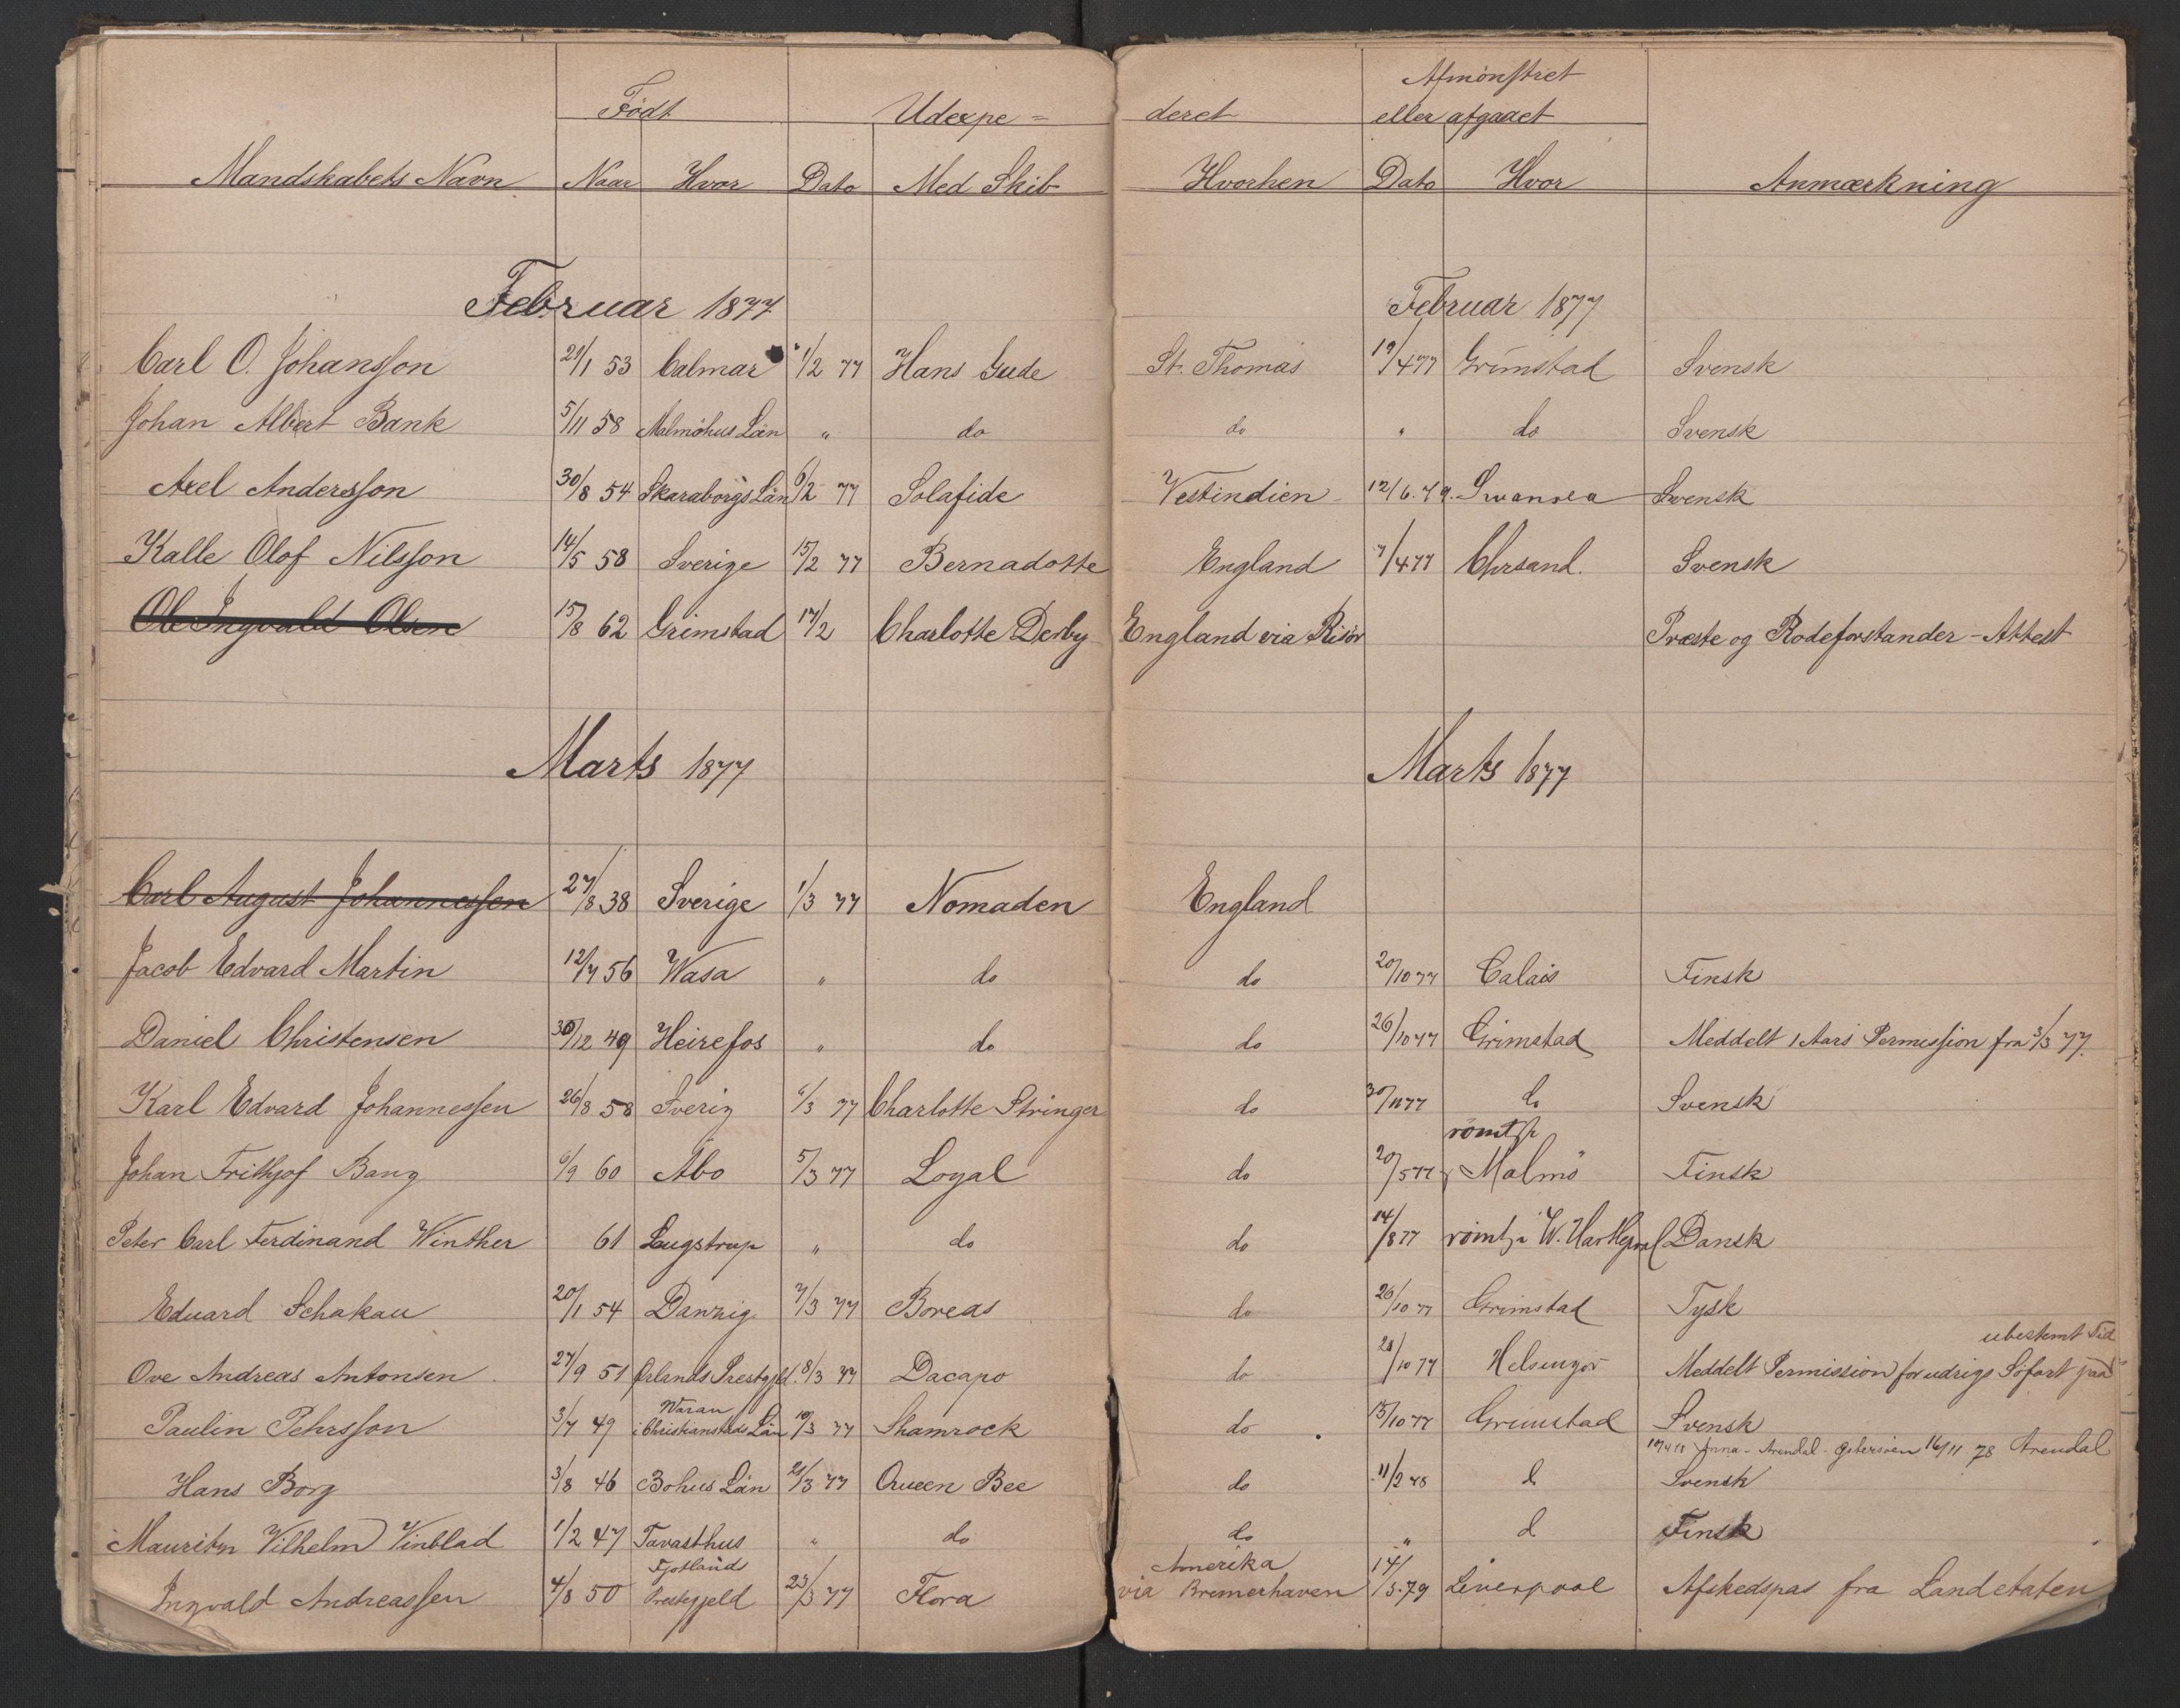 Født Udexpe= deret Afmønstret
eller afgaaet
Mandskabets Navn Naar Hvor Dato Med Skib Hvorhen Dato Hvor Anmærkning
Februar 1877 Februar 1877
Carl O. Johansson 21/1 53 Calmar 1/2 77 Hans Gude St. Thomas 17/4 77 Grimstad Svensk
Johan Albert Bank 5/11 58 Malmöhus Län " do do " do Svensk
Axel Andersson 30/8 54 Skaraborgs Län 6/2 77 Solafide Vestindien 12/6. 79. Swansea Svensk
Kalle Olof Nilsson 14/5 58 Sverige 15/2 77 Bernadotte England 7/4 77 Chrsand. Svensk
Ole Ingvald Olsen 15/8 62 Grimstad 17/2 Charlotte Derby England via Risør Præste og Rodeforstander-Attest
Marts 1877 Marts 1877
Carl August Johannessen 27/8 38 Sverige 1/3 77 Nomaden England
Jacob Edvard Martin 12/7 56 Wasa " do do 20/10 77 Calais Finsk
Daniel Christensen 30/12 49 Heirefos " do do 26/10 77 Grimstad Meddelt 1 Aars Permission fra 3/3 77.
Karl Edvard Johannessen 26/8 58 Sverig 6/3 77 Charlotte Stringer do 30/11 77 do Svensk
rømt fr
Johan Frithjof Bang 6/9 60 Åbo 5/3 77 Loyal do 20/5 77 Malmö Finsk
Peter Carl Ferdinand Winther 61 Lugstrup " do do 14/8 77 rømt fr W. Hartlepool Dansk
Eduard Schakau 20/1 54 Danzig 7/3 77 Boreas do 26/10 77 Grimstad Tysk
ubestemt Tid
Ove Andreas Antonsen 27/9 51 Ørlands Prestgjeld. 8/3 77 Dacapo do 21/10 77 Helsingør Meddelt Permission for udrigs Søfart paa
Waran
Paulin Pehrsson 3/7 49 i Christianstads Län 10/3 77 Shamrock do 15/10 77 Grimstad Svensk
Anna - Arendal - 16/11 78 Arendal
Hans Borg 3/8 46 Bohus Län 21/3 77 Queen Bee do 11/2 78 d Svensk
Mauritz Vilhelm Vinblad 1/2 47 Tavasthus " do do " d Finsk
Fjotlands Amerika
Ingvald Andreassen 4/8 50 Prestegjeld 23/3 77 Flora via Bremerhaven 14/3. 79 Liverpool Afskedspas fra Landetaten